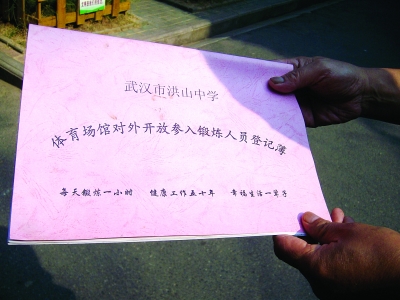 武汉市洪山中学
体育场馆对外开放参入锻炼人员登记簿
每天锻炼一小时 健康工作五十年 幸福生活一辈子